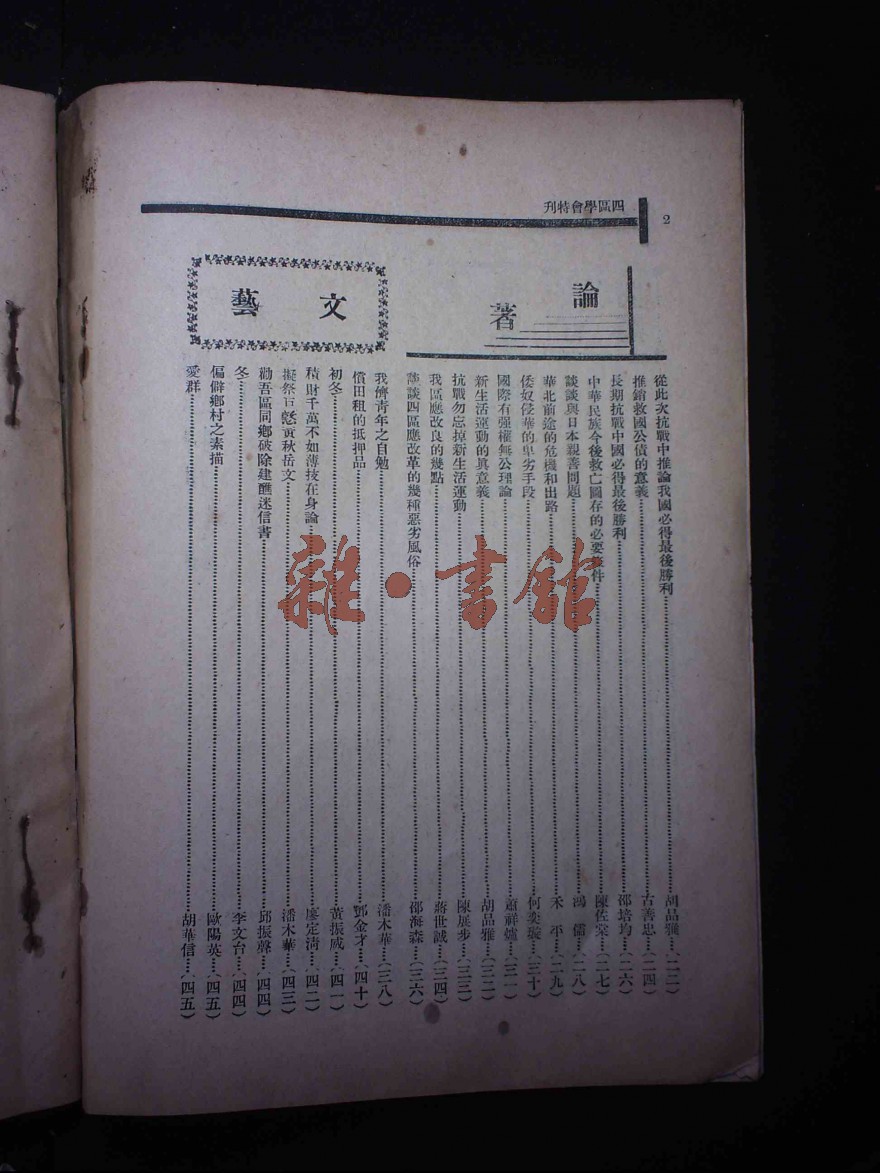 2
四區學會特刊
論著
從此次抗戰中推論我國必得最後勝利…胡品雅…(二二)
推銷救國公債的意義…古善忠…(二四)
長期抗戰中國必得最後勝利…鄧培均…(二六)
中華民族今後救亡圖存的必要條件…陳佐棠…(二七)
談談與日本親善問題…鴻儒…(二八)
華北前途的危機和出路…禾平…(二九)
倭奴侵華的卑劣手段…何奕璇…(三十)
國際有强權無公理論…蕭祥爐…(三一)
新生活運動的眞意義…胡品雅…(三二)
抗戰勿忘掉新生活運動…陳展步…(三三)
我區應改良的幾點…蔣世誠…(三四)
談談四區應改革的幾種惡劣風俗…鄧海森…(三六)
文藝
我儕靑年之自勉…潘木華…(三八)
償田租的抵押品…鄧金才…(四十)
初冬…黃振威…(四一)
積財千萬不如薄技在身論…廖定淸…(四二)
擬祭古懸黃秋岳文…潘木華…(四三)
勸吾區同鄉破除建醮迷信書…邱振聲…(四四)
冬…李文台…(四四)
偏僻鄉村之素描…歐陽英…(四五)
愛群…胡華信…(四五)
雜·書館